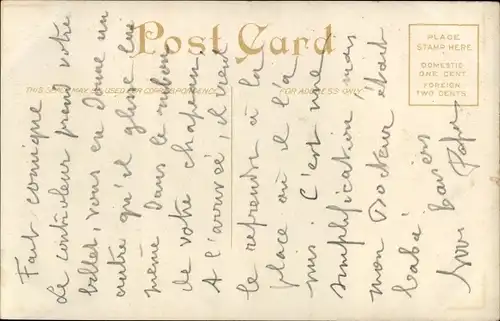 Post Card
THIS SPACE MAY BE USED FOR CORRESPONDENCE
FOR ADDRESS ONLY
PLACE
STAMP HERE
DOMESTIC
ONE CENT
FOREIGN
TWO CENTS
Fait comique
Le contrôleur prend votre
billet, vous en donne un
autre qu'il glisse lui
même dans le ruban
de votre chapeau.
A l'arrivée, il vient
le reprendre à la
place où il l'a
mis. C'est une
simplification, mais
mon Docteur était
baba!
bons baisers
Papa